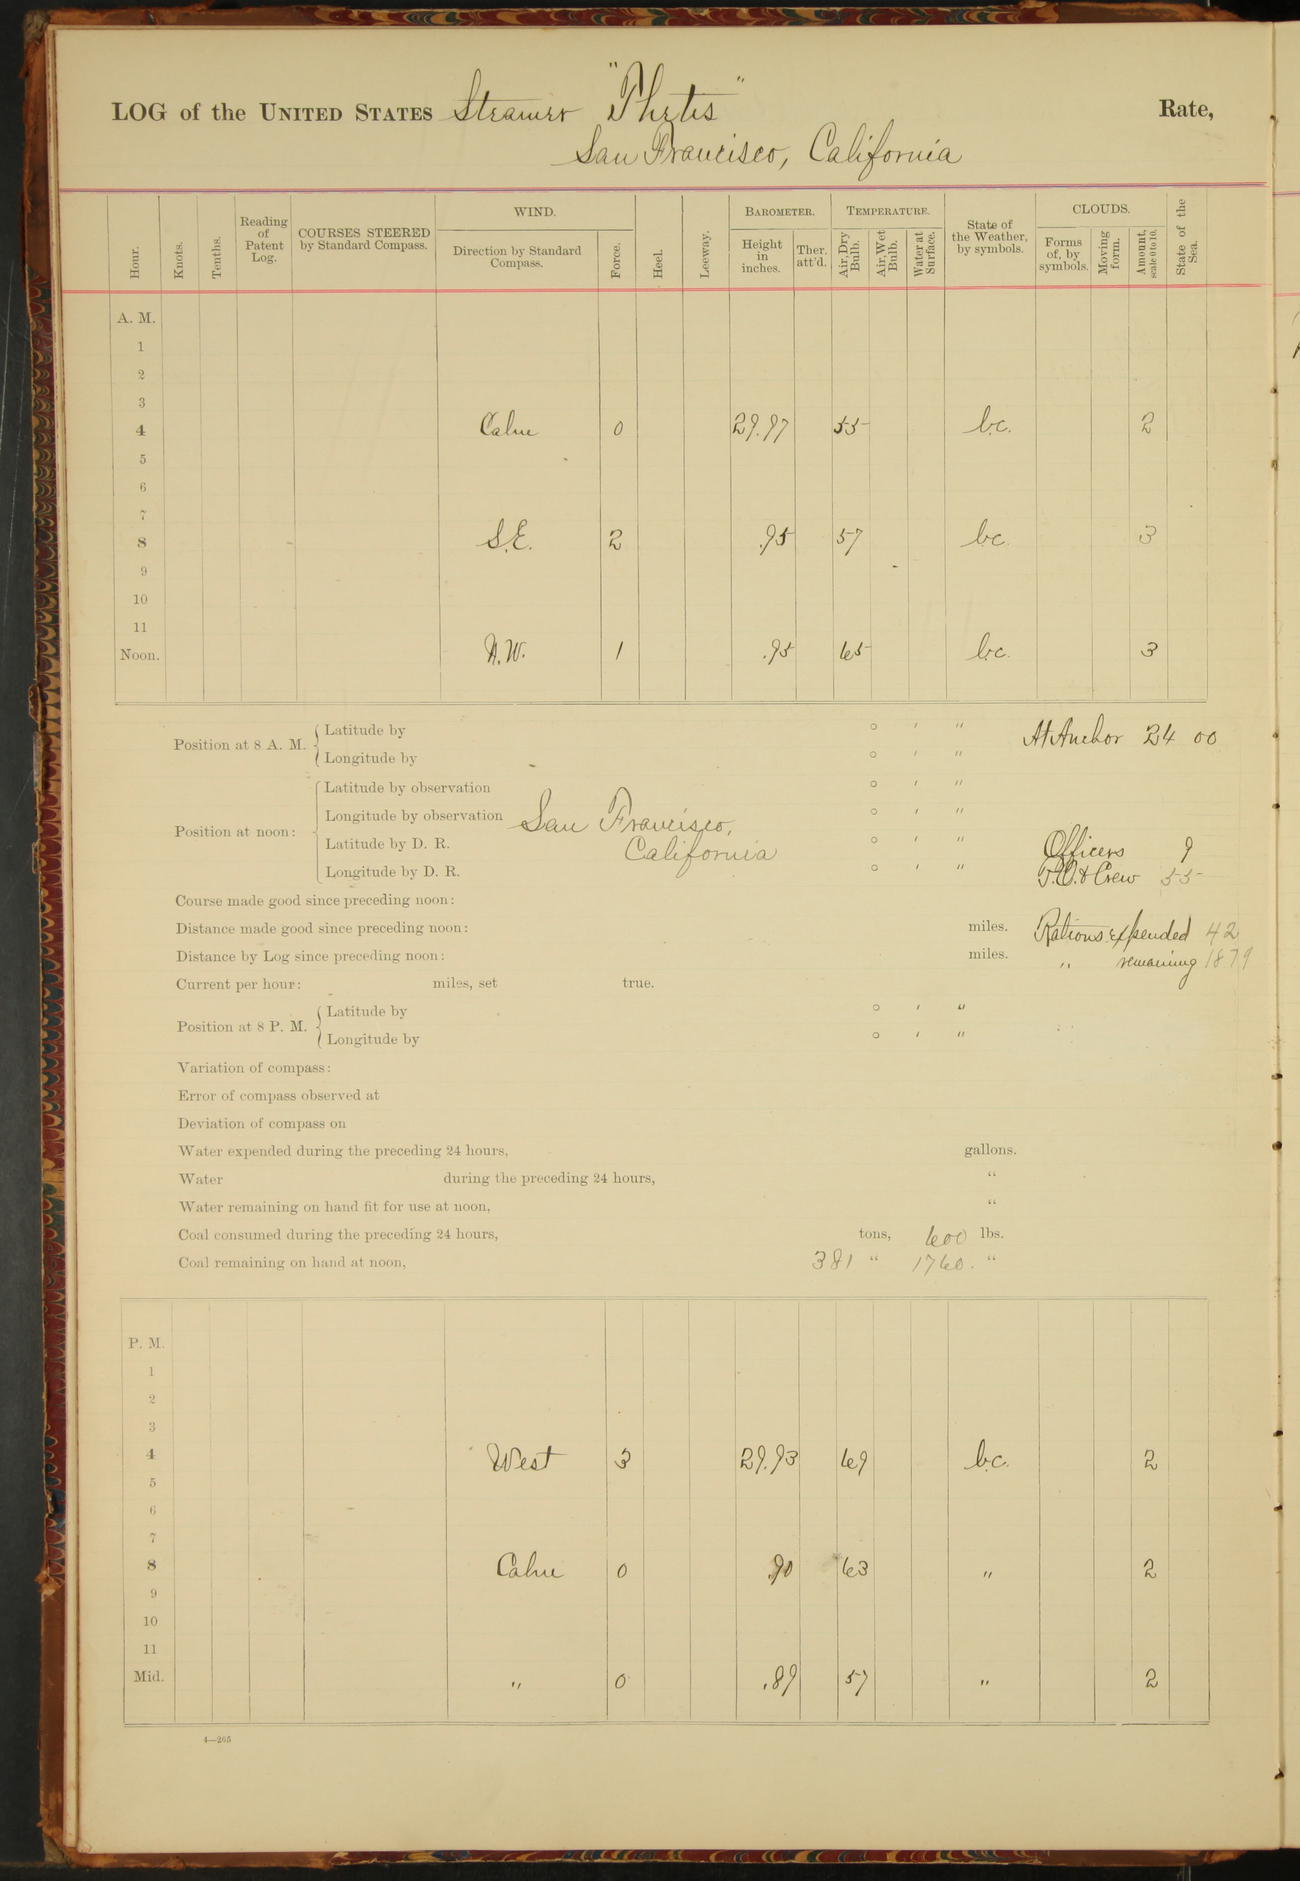 LOG of the UNITED STATES Steamer "Thetis" Rate,
San Francisco, California
Hour. Knots. Tenths. Reading of Patent Log. COURSES STEERED by Standard Compass. WIND. Direction by Standard Compass. Force. Heel. Leeway. BAROMETER. Height in inches. Ther. att'd. TEMPERATURE. Air, Dry Bulb. Air, Wet Bulb. Water at Surface. State of the Weather, by symbols. CLOUDS. Forms of, by symbols. Moving form. Amount, scale 0 to 10. State of the Sea.
A. M.
1
2
3
4 Calm 0 29.97 55 b.c. 2
5
6
7
8 S.E. 2 .95 57 b.c. 3
9
10
11
Noon. N.W. 1 .95 65 b.c. 3
Position at 8 A. M. Latitude by ° ′ ″ At Anchor 24 00
Longitude by ° ′ ″
Position at noon: Latitude by observation ° ′ ″
Longitude by observation San Francisco, ° ′ ″
Latitude by D. R. California ° ′ ″ Officers 9
Longitude by D. R. ° ′ ″ P.O. & Crew 55
Course made good since preceding noon:
Distance made good since preceding noon: miles. Rations expended 42
Distance by Log since preceding noon: miles. " remaining 1879
Current per hour: miles, set true.
Position at 8 P. M. Latitude by ° ′ ″
Longitude by ° ′ ″
Variation of compass:
Error of compass observed at
Deviation of compass on
Water expended during the preceding 24 hours, gallons.
Water during the preceding 24 hours, "
Water remaining on hand fit for use at noon, "
Coal consumed during the preceding 24 hours, tons, 600 lbs.
Coal remaining on hand at noon, 381 " 1760. "
P. M.
1
2
3
4 West 3 29.93 69 b.c. 2
5
6
7
8 Calm 0 .90 63 " 2
9
10
11
Mid. " 0 .89 57 " 2
4—265